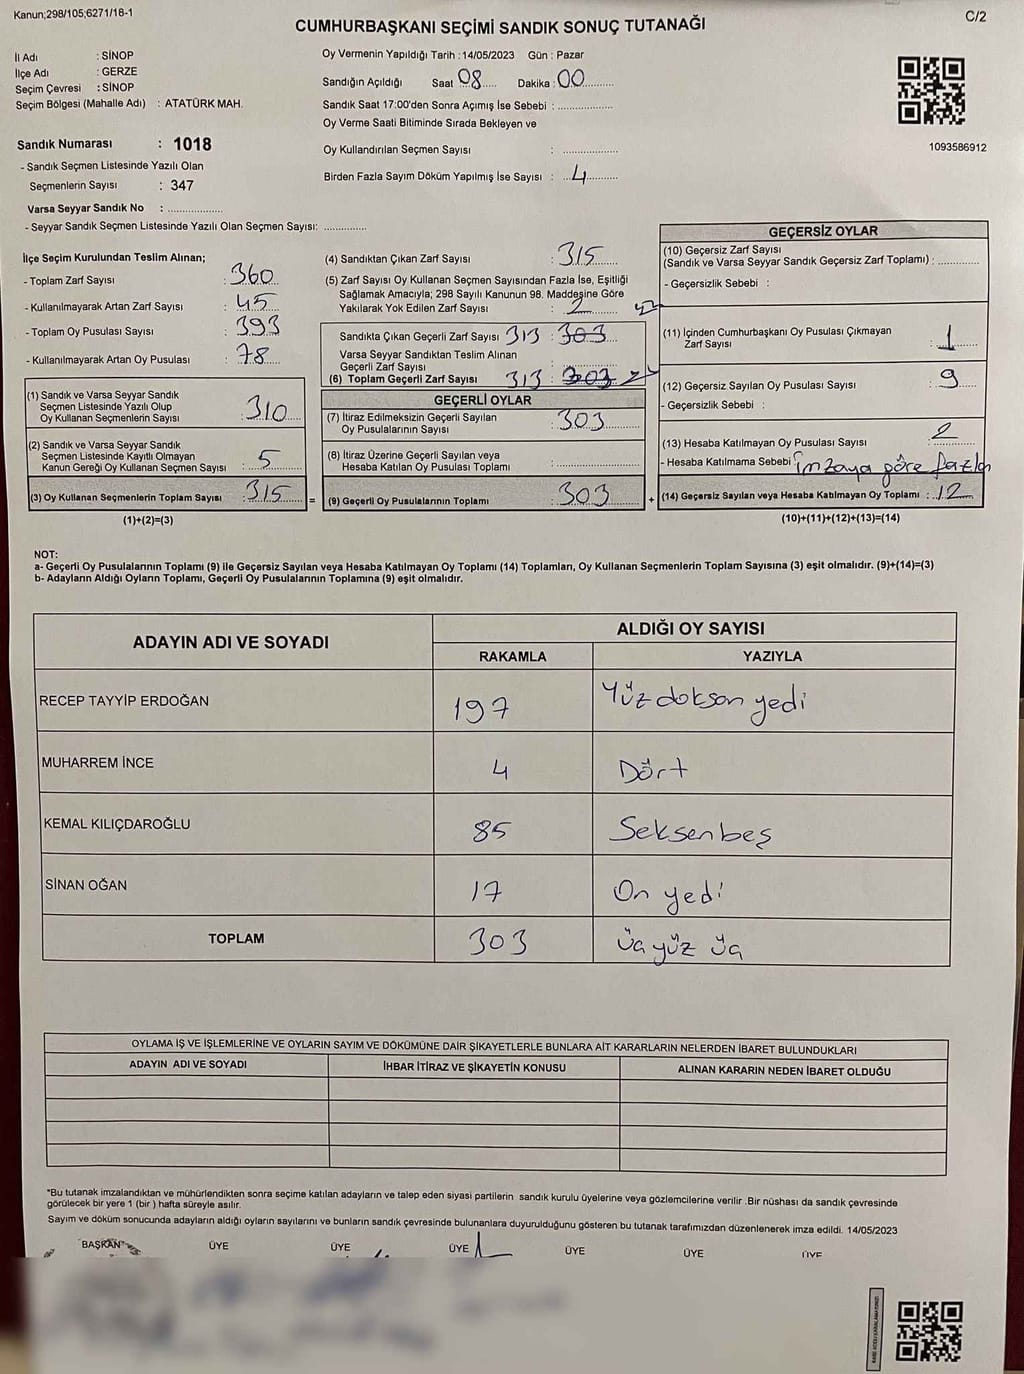 Kanun;298/105;6271/18-1
C/2
CUMHURBAŞKANI SEÇİMİ SANDIK SONUÇ TUTANAĞI
İl Adı : SİNOP
İlçe Adı : GERZE
Seçim Çevresi : SİNOP
Seçim Bölgesi (Mahalle Adı) : ATATÜRK MAH.
Sandık Numarası : 1018
- Sandık Seçmen Listesinde Yazılı Olan
Seçmenlerin Sayısı : 347
Varsa Seyyar Sandık No : ..................
- Seyyar Sandık Seçmen Listesinde Yazılı Olan Seçmen Sayısı: ..............
Oy Vermenin Yapıldığı Tarih : 14/05/2023 Gün : Pazar
Sandığın Açıldığı Saat 08 Dakika : 00
Sandık Saat 17:00'den Sonra Açımış İse Sebebi : ..................
Oy Verme Saati Bitiminde Sırada Bekleyen ve
Oy Kullandırılan Seçmen Sayısı : ..................
Birden Fazla Sayım Döküm Yapılmış İse Sayısı : 4
1093586912
İlçe Seçim Kurulundan Teslim Alınan;
- Toplam Zarf Sayısı : 360
- Kullanılmayarak Artan Zarf Sayısı : 45
- Toplam Oy Pusulası Sayısı : 393
- Kullanılmayarak Artan Oy Pusulası : 78
(1) Sandık ve Varsa Seyyar Sandık
Seçmen Listesinde Yazılı Olup
Oy Kullanan Seçmenlerin Sayısı : 310
(2) Sandık ve Varsa Seyyar Sandık
Seçmen Listesinde Kayıtlı Olmayan
Kanun Gereği Oy Kullanan Seçmen Sayısı : 5
(3) Oy Kullanan Seçmenlerin Toplam Sayısı : 315 =
(1)+(2)=(3)
(4) Sandıktan Çıkan Zarf Sayısı : 315
(5) Zarf Sayısı Oy Kullanan Seçmen Sayısından Fazla İse, Eşitliği
Sağlamak Amacıyla; 298 Sayılı Kanunun 98. Maddesine Göre
Yakılarak Yok Edilen Zarf Sayısı : 2
Sandıkta Çıkan Geçerli Zarf Sayısı 313 : 303
Varsa Seyyar Sandıktan Teslim Alınan
Geçerli Zarf Sayısı :
(6) Toplam Geçerli Zarf Sayısı 313 : 303
GEÇERLİ OYLAR
(7) İtiraz Edilmeksizin Geçerli Sayılan
Oy Pusulalarının Sayısı : 303
(8) İtiraz Üzerine Geçerli Sayılan veya
Hesaba Katılan Oy Pusulası Toplamı : ..................
(9) Geçerli Oy Pusulalarının Toplamı : 303 +
GEÇERSİZ OYLAR
(10) Geçersiz Zarf Sayısı
(Sandık ve Varsa Seyyar Sandık Geçersiz Zarf Toplamı) : ..............
- Geçersizlik Sebebi :
(11) İçinden Cumhurbaşkanı Oy Pusulası Çıkmayan
Zarf Sayısı : 1
(12) Geçersiz Sayılan Oy Pusulası Sayısı : 9
- Geçersizlik Sebebi :
(13) Hesaba Katılmayan Oy Pusulası Sayısı : 2
- Hesaba Katılmama Sebebi : imzaya göre fazla
(14) Geçersiz Sayılan veya Hesaba Katılmayan Oy Toplamı : 12
(10)+(11)+(12)+(13)=(14)
NOT:
a- Geçerli Oy Pusulalarının Toplamı (9) ile Geçersiz Sayılan veya Hesaba Katılmayan Oy Toplamı (14) Toplamları, Oy Kullanan Seçmenlerin Toplam Sayısına (3) eşit olmalıdır. (9)+(14)=(3)
b- Adayların Aldığı Oyların Toplamı, Geçerli Oy Pusulalarının Toplamına (9) eşit olmalıdır.
ADAYIN ADI VE SOYADI
ALDIĞI OY SAYISI
RAKAMLA YAZIYLA
RECEP TAYYİP ERDOĞAN 197 Yüz doksan yedi
MUHARREM İNCE 4 Dört
KEMAL KILIÇDAROĞLU 85 Seksen beş
SİNAN OĞAN 17 On yedi
TOPLAM 303 üç yüz üç
OYLAMA İŞ VE İŞLEMLERİNE VE OYLARIN SAYIM VE DÖKÜMÜNE DAİR ŞİKAYETLERLE BUNLARA AİT KARARLARIN NELERDEN İBARET BULUNDUKLARI
ADAYIN ADI VE SOYADI İHBAR İTİRAZ VE ŞİKAYETİN KONUSU ALINAN KARARIN NEDEN İBARET OLDUĞU
*Bu tutanak imzalandıktan ve mühürlendikten sonra seçime katılan adayların ve talep eden siyasi partilerin sandık kurulu üyelerine veya gözlemcilerine verilir .Bir nüshası da sandık çevresinde
görülecek bir yere 1 (bir ) hafta süreyle asılır.
Sayım ve döküm sonucunda adayların aldığı oyların sayılarını ve bunların sandık çevresinde bulunanlara duyurulduğunu gösteren bu tutanak tarafımızdan düzenlenerek imza edildi. 14/05/2023
BAŞKAN ÜYE ÜYE ÜYE ÜYE ÜYE ÜYE